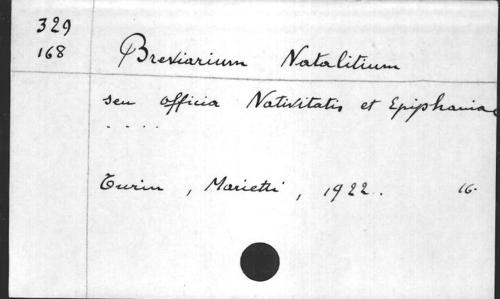 329
168
Breviarium Natalitium
seu officia Nativitatis et Epiphaniae
. . . .
Turin, Marietti, 1922. 16.